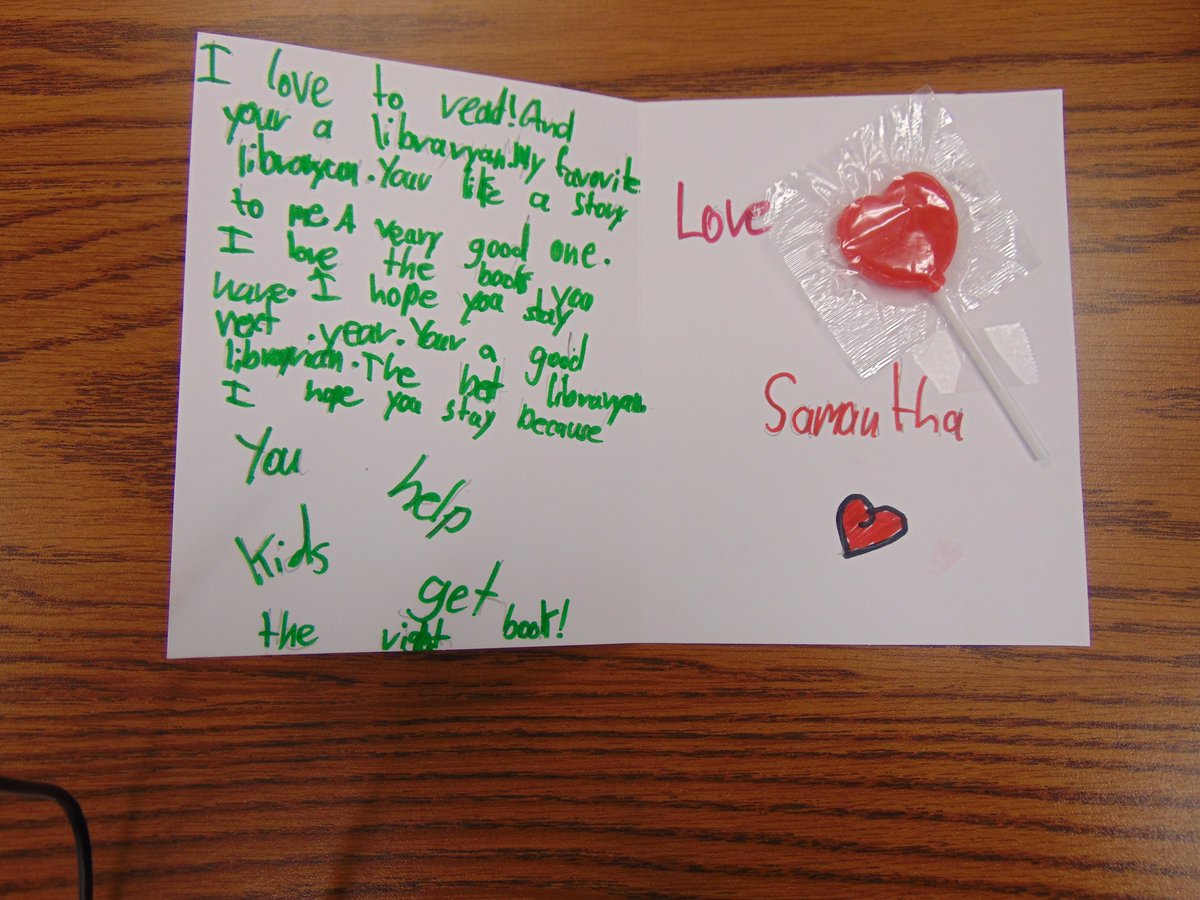 I love to read! And
your a libraryan. My favorite
libraryan. Your like a story
to me A veary good one.
I love the books you
have. I hope you stay
next year. Your a good
libraryian. The bet libraryan.
I hope you stay because
You help
Kids get
the right book!
Love
Samantha